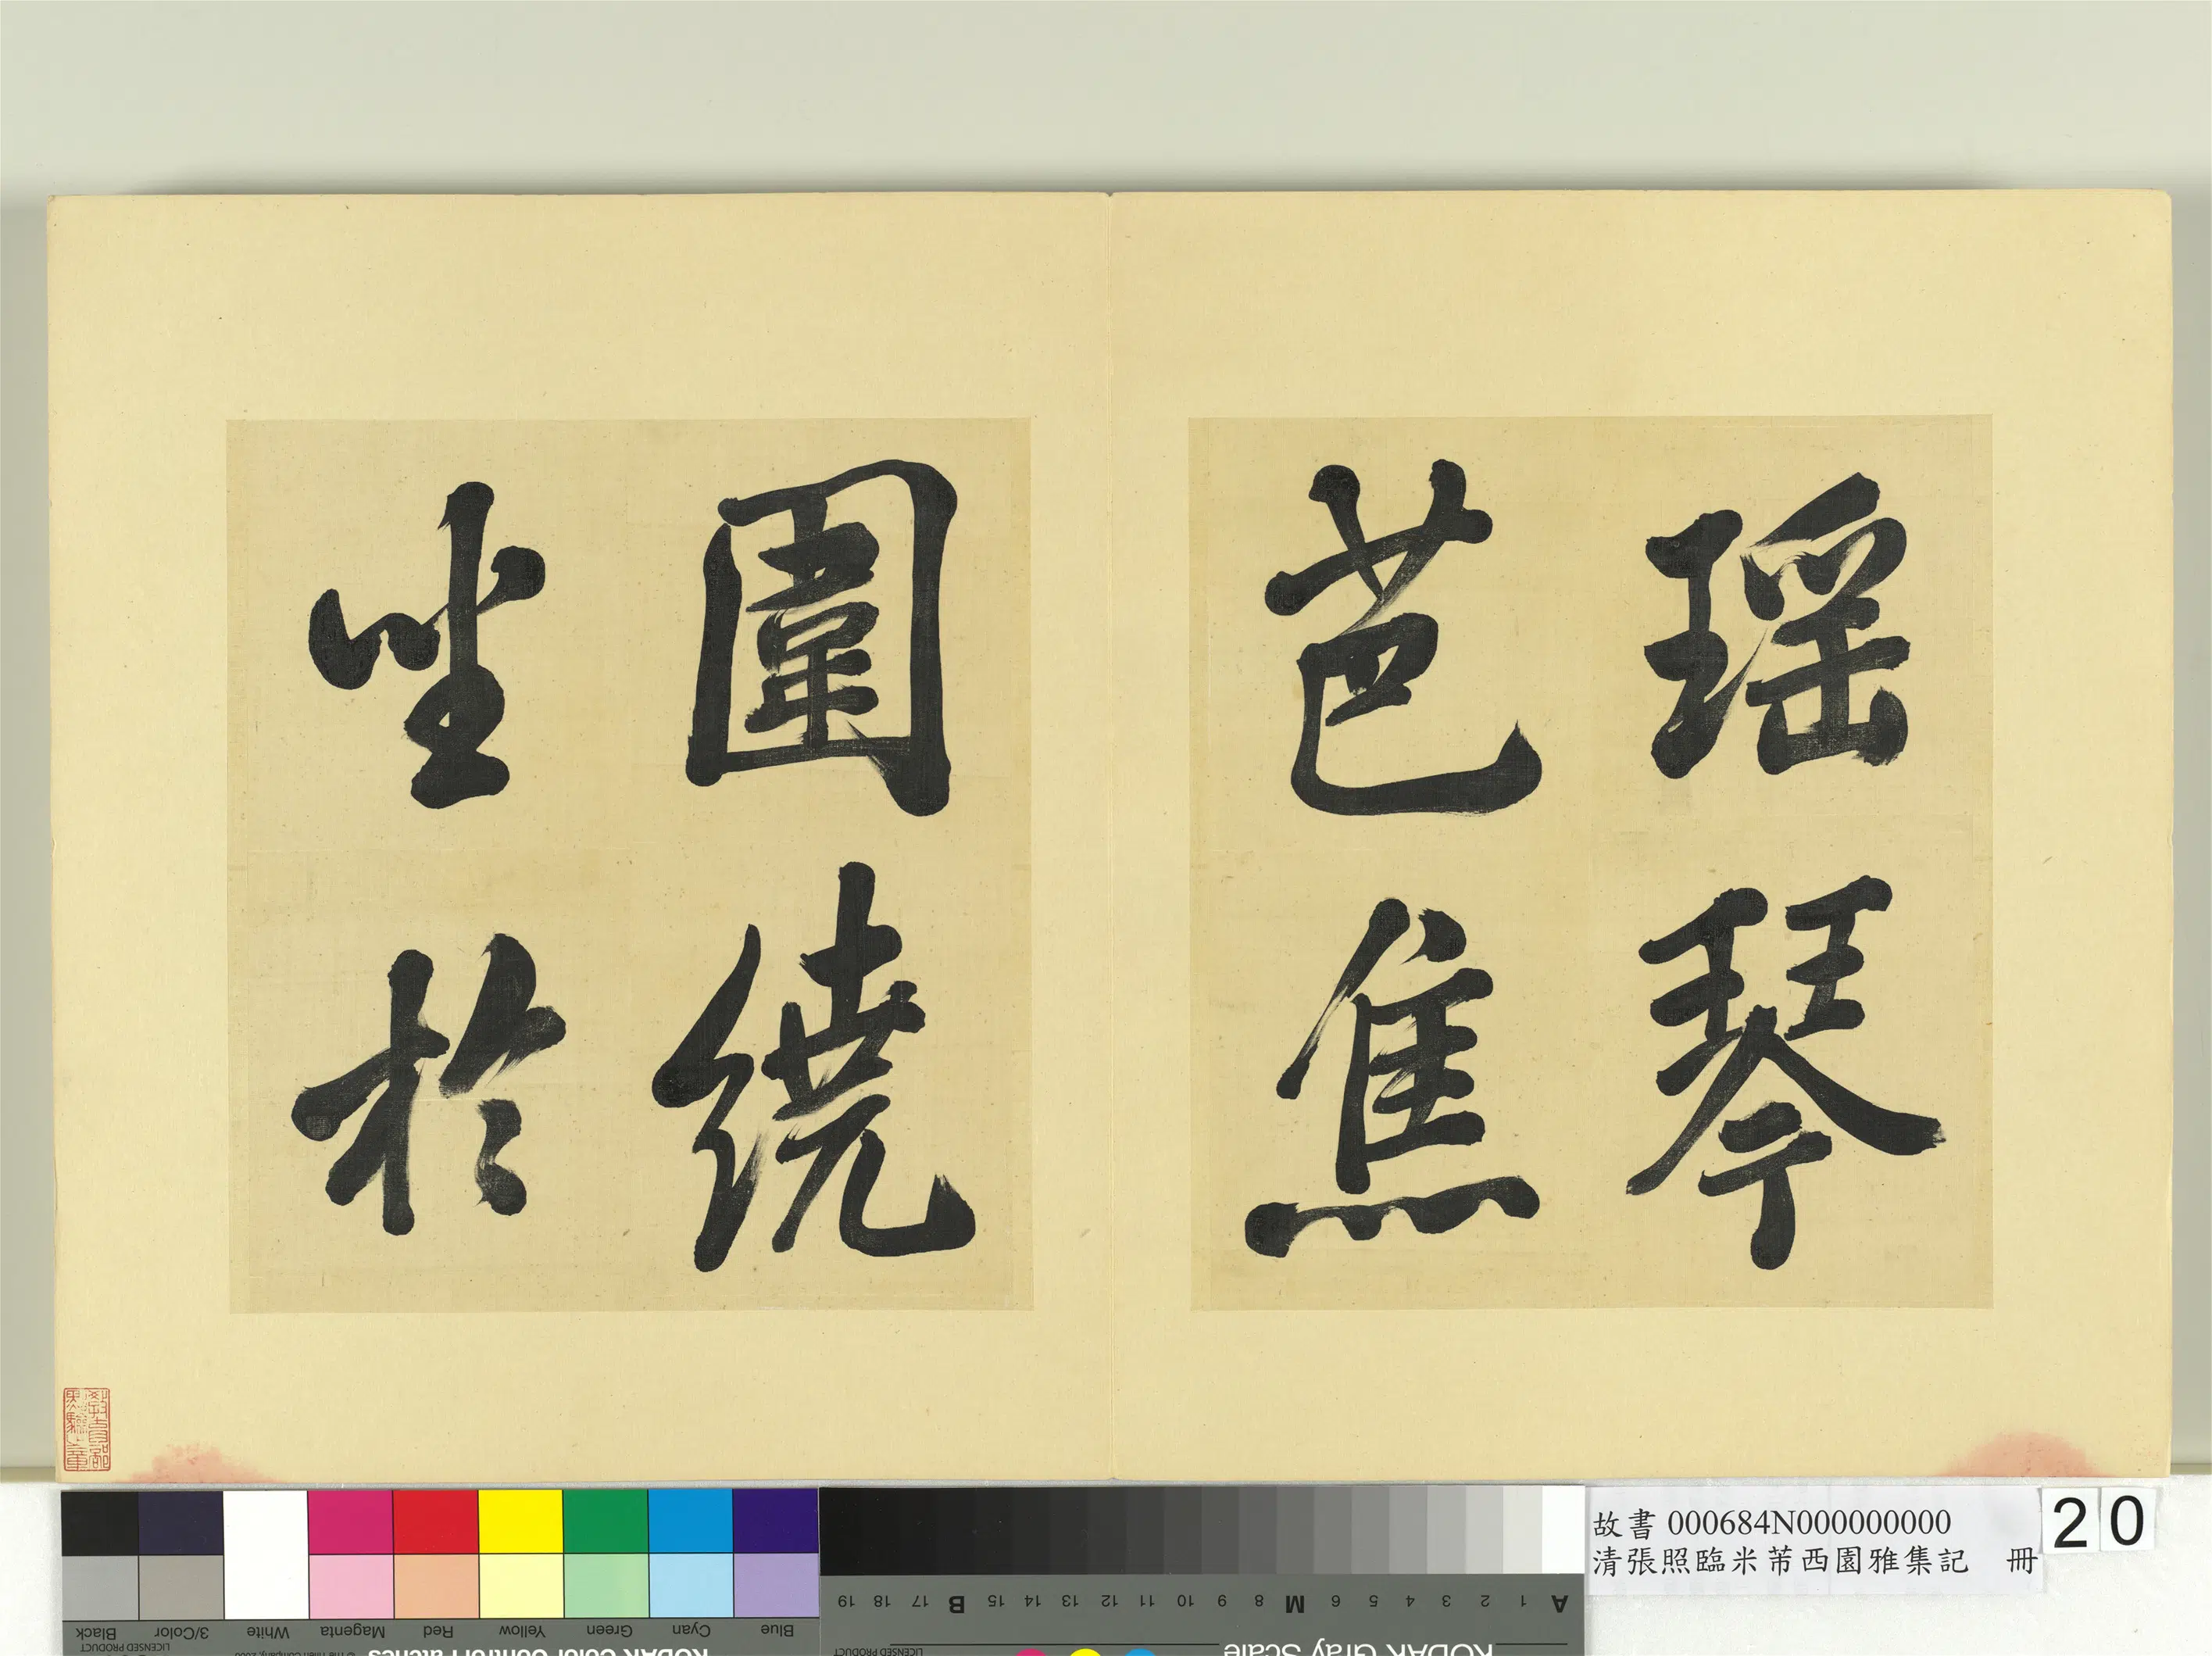 瑶琴
芭蕉
圍繞
坐於
故書 000684N000000000
清張照臨米芾西園雅集記 冊
20
Blue Cyan Green Yellow Red Magenta White 3/Color Black
KODAK Color Control Patches
© The Tiffen Company, 2000
LICENSED PRODUCT
A 1 2 3 4 5 6 M 8 9 10 11 12 13 14 15 B 17 18 19
KODAK Gray Scale
LICENSED PRODUCT